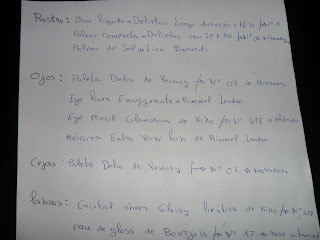 Rostro: Base liquida Deliplus Larga duración: 16h Nº 1
Polvos compactos Deliplus con SPF10 Nº
Polvos de Sol de Lina
Ojos: Paleta Delia de Yesensy Nº 02 Marrones
Eye liner Exaggerate Rimmel London
Eye Pencil Glamorous de Kiko Nº 416
Máscara Extra Wow lash de Rimmel London
Cejas: Paleta Delia de Yesensy Nº 02 Marrones
Labios: Cristal sheer Glossy lipstick de Kiko Nº
eau de gloss de Bourjois Nº 17 rose